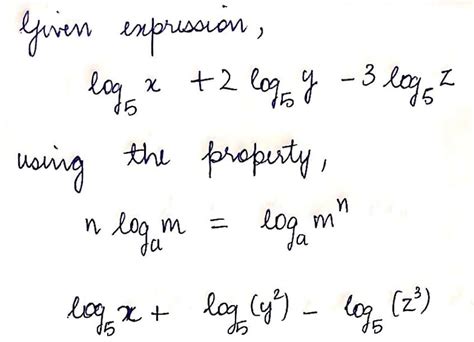 Given expression,
log₅ x + 2 log₅ y - 3 log₅ z
using the property,
n logₐ m = logₐ mⁿ
log₅ x + log₅ (y²) - log₅ (z³)